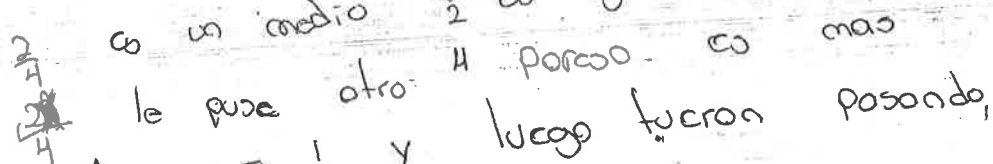 2/4 es un medio 2
le puse otro 4 poreso es mas
2/4
luego fueron pasando,
y